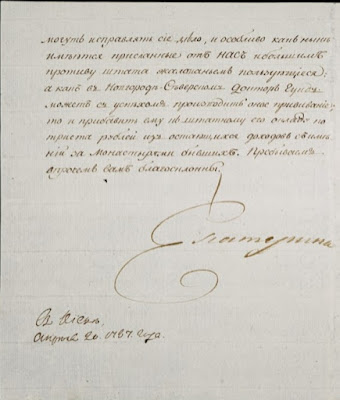 могутъ исправлять сіе дѣло, и особливо какъ нынѣ
имѣются присланные отъ НАСЪ нѣбольшимъ
противу штата жалованьемъ пользующіеся,
а какъ въ Новгородѣ Сѣверскомъ Докторъ
можетъ съ успѣхомъ производить оное прививаніе,
то и прибавить ему къ штатному его окладу по
триста рублей изъ остающихся доходовъ съ имѣ-
ній за Монастырями бывшихъ. Пребываемъ
впрочемъ вамъ благосклонны.
Екатерина
Въ Кіевѣ,
Апрѣля 20. 1787. года.